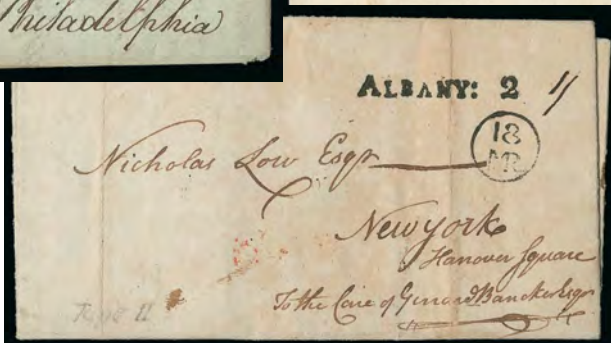 Philadelphia
ALBANY: 2
18
MR
Nicholas Low Esqr
New york
Hanover Square
To the Care of Gerrard Bancker Esqr
Type II